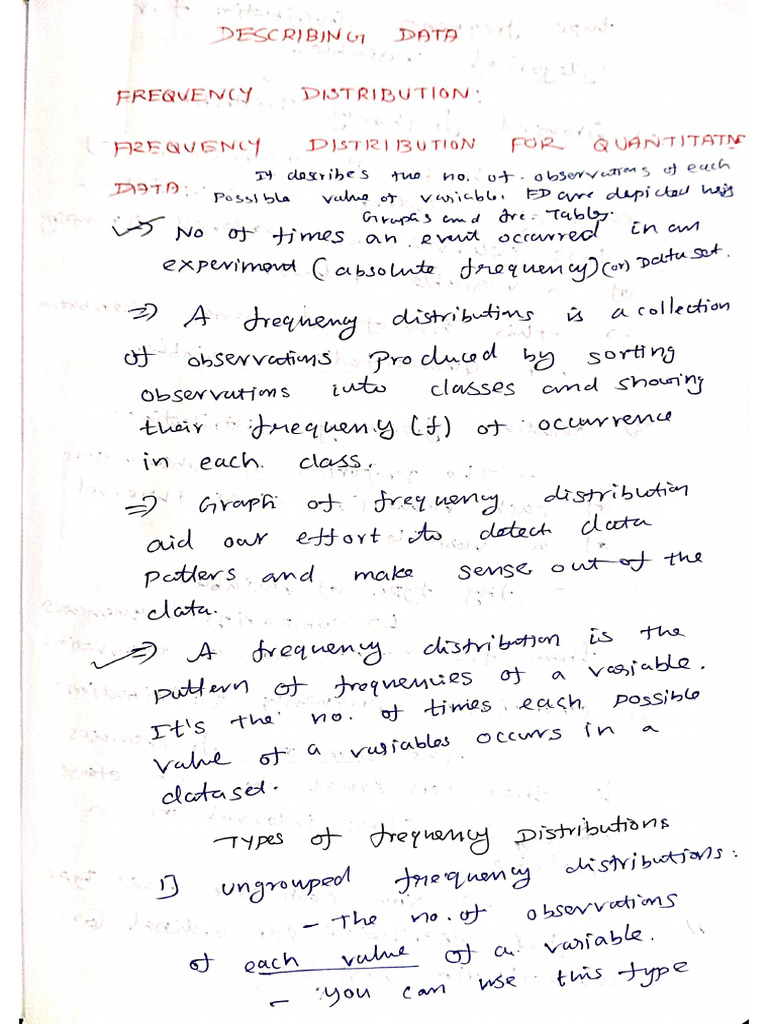 DESCRIBING DATA
FREQUENCY DISTRIBUTION:
FREQUENCY DISTRIBUTION FOR QUANTITATIVE
DATA: It describes the no. of observations of each
Possible value of variable. FD are depicted using
Graphs and fre. Tables.
No of times an event occurred in an
experiment (absolute frequency) (or) Data set.
=> A frequency distributions is a collection
of observations produced by sorting
observations into classes and showing
their frequency (f) of occurrence
in each class.
=> Graph of frequency distribution
aid our effort to detect data
patters and make sense out of the
data.
=> A frequency distribution is the
pattern of frequencies of a variable.
It's the no. of times each possible
value of a variables occurs in a
dataset.
Types of frequency Distributions
1) ungrouped frequency distributions:
- The no. of observations
of each value of a variable.
- You can use this type